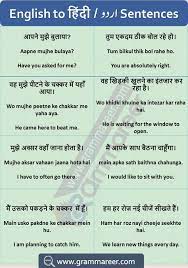 English to हिंदी / اردو Sentences
आपने मुझे बुलाया?
Aapne mujhe bulaya?
Have you asked for me?
तुम एकदम ठीक बोल रहे हो।
Tum bilkul thik bol rahe ho.
You are absolutely right.
वह मुझे पीटने के चक्कर में यहाँ आया।
Wo mujhe peetne ke chakkar me yaha aya.
He came here to beat me.
वह खिड़की खुलने का इंतजार कर रहा है।
Wo khidki khulne ka intezar kar raha hai.
He is waiting for the window to open.
मुझे अक्सर वहाँ जाना होता है।
Mujhe aksar vahaan jaana hota hai
I have to often go there.
मैं आपके साथ बैठना चाहूँगा।
main apke sath baithna chahunga.
I would like to sit with you.
मैं उसको पकड़ने के चक्कर में हूँ।
Main usko pakdne ke chakkar mein hu.
I am planning to catch him.
हम हर रोज नई चीजें सीखते हैं।
Ham har roz nayi cheeje seekhte hai.
We learn new things every day.
www.grammareer.com